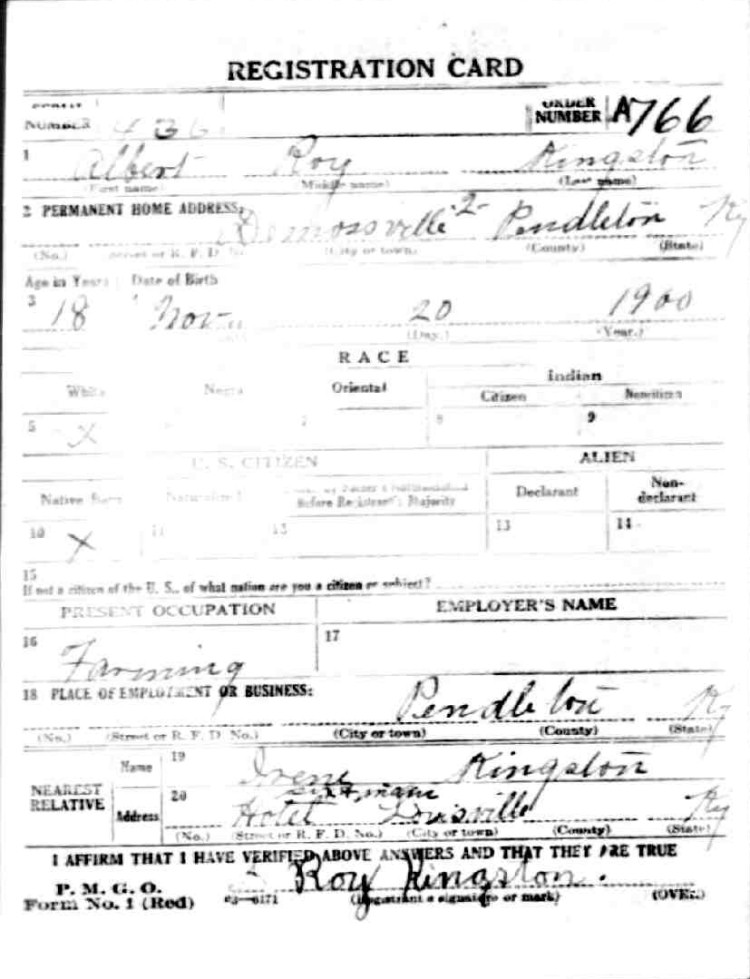 REGISTRATION CARD
SERIAL NUMBER 436 ORDER NUMBER A766
1 Albert Roy Kingston
(First name) (Middle name) (Last name)
2 PERMANENT HOME ADDRESS:
Demossville 2 Pendleton Ky
(No.) (Street or R. F. D. No.) (City or town) (County) (State)
Age in Years Date of Birth
3 18 Nov 20 1900
(Day.) (Year.)
RACE
White Negro Oriental Indian
Citizen Noncitizen
5 X 7 8 9
U. S. CITIZEN ALIEN
Native Born Naturalized Citizen by Father's Naturalization Before Registrant's Majority Declarant Non-declarant
10 X 11 12 13 14
15
If not a citizen of the U. S., of what nation are you a citizen or subject?
PRESENT OCCUPATION EMPLOYER'S NAME
16 Farming 17
18 PLACE OF EMPLOYMENT OR BUSINESS:
Pendleton Ky
(No.) (Street or R. F. D. No.) (City or town) (County) (State)
NEAREST RELATIVE Name 19 Irene Kingston
6th & main
Address 20 Hotel Louisville Ky
(No.) (Street or R. F. D. No.) (City or town) (County) (State)
I AFFIRM THAT I HAVE VERIFIED ABOVE ANSWERS AND THAT THEY ARE TRUE
P. M. G. O.
Form No. 1 (Red) 03—6171 Roy Kingston.
(Registrant's signature or mark) (OVER)